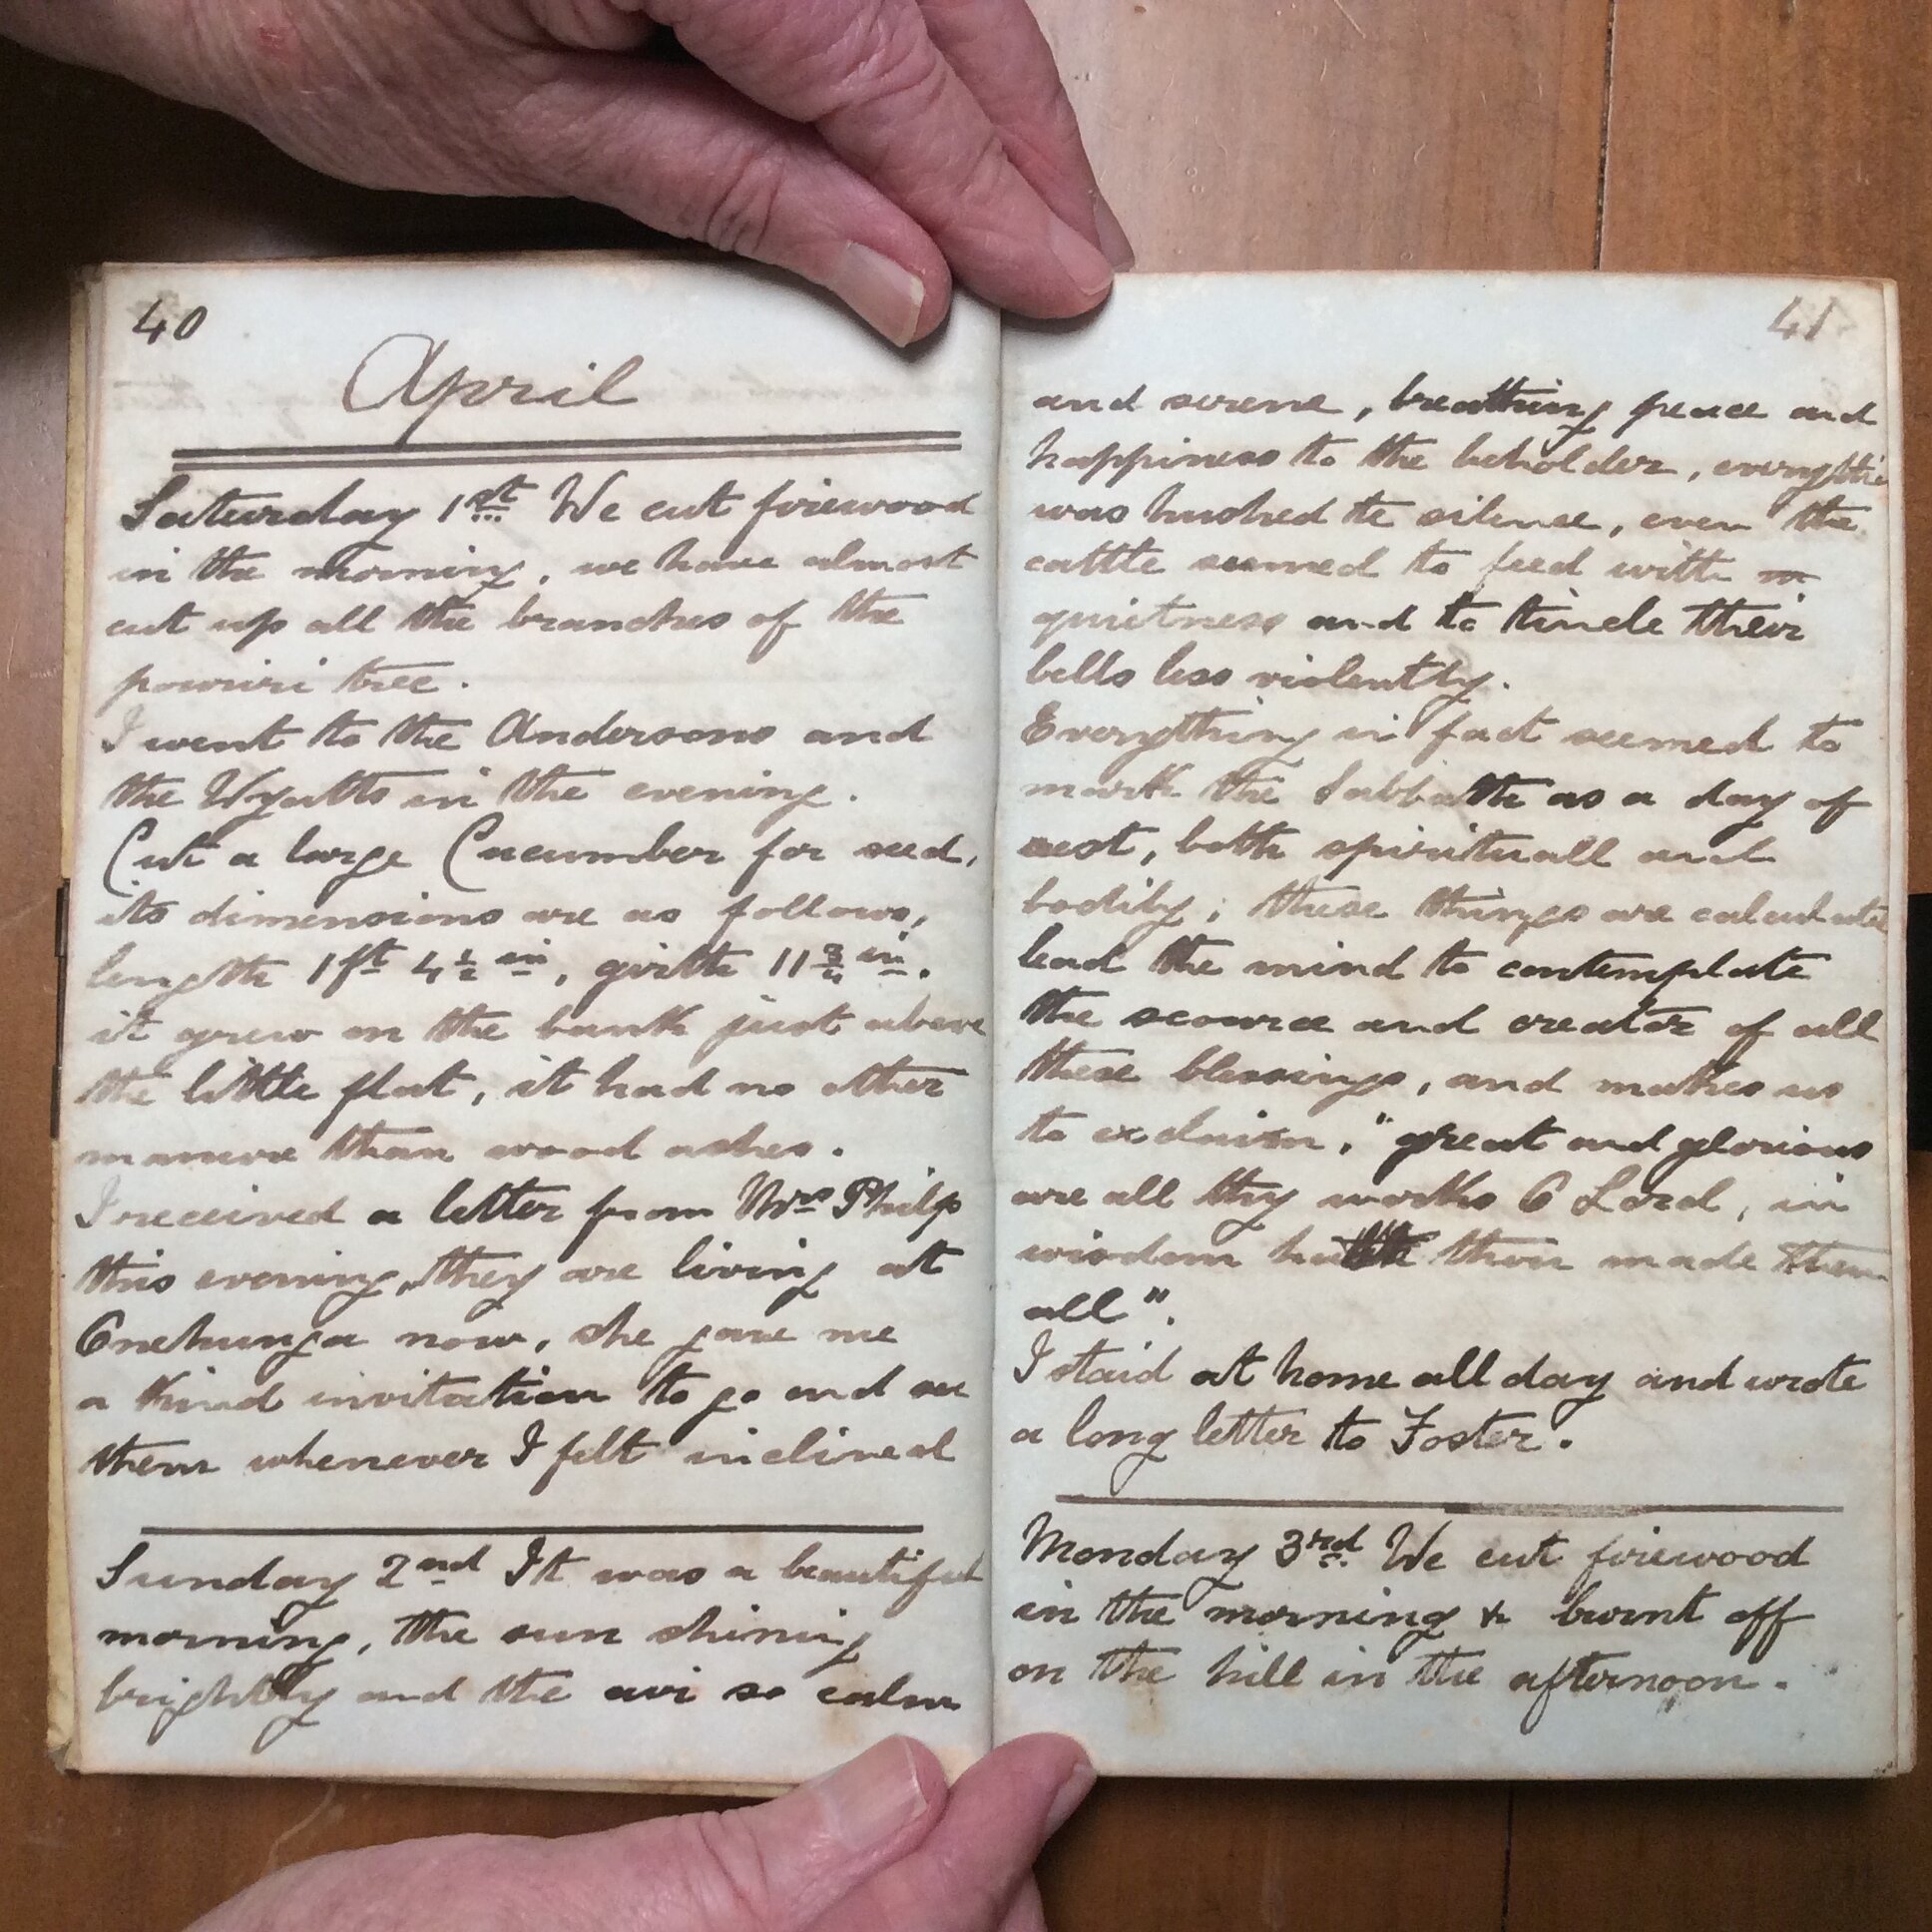 40
April
Saturday 1st We cut firewood
in the morning, we have almost
cut up all the branches of the
powriri tree.
I went to the Andersons and
the Wyatts in the evening.
Cut a large Cucumber for seed,
its dimensions are as follows,
length 1ft 4½ in, girth 11¾ in.
it grew on the bank just above
the little flat, it had no other
manure than wood ashes.
I received a letter from Mrs Philip
this evening, they are living at
Onehunga now, she gave me
a kind invitation to go and see
them whenever I felt inclined
Sunday 2nd It was a beautiful
morning, the sun shining
brightly and the air so calm
41
and serene, breathing peace and
happiness to the beholder, everythi
was hushed to silence, even the
cattle seemed to feed with
quietness and to tincle their
bells less violently.
Everything in fact seemed to
mark the Sabbath as a day of
rest, both spirituall and
bodily; these things are calculated
lead the mind to contemplate
the scource and creator of all
these blessings, and makes us
to exclaim, "great and glorious
are all thy works O Lord, in
wisdom hath thou made them
all".
I staid at home all day and wrote
a long letter to Foster.
Monday 3rd. We cut firewood
in the morning & burnt off
on the hill in the afternoon.